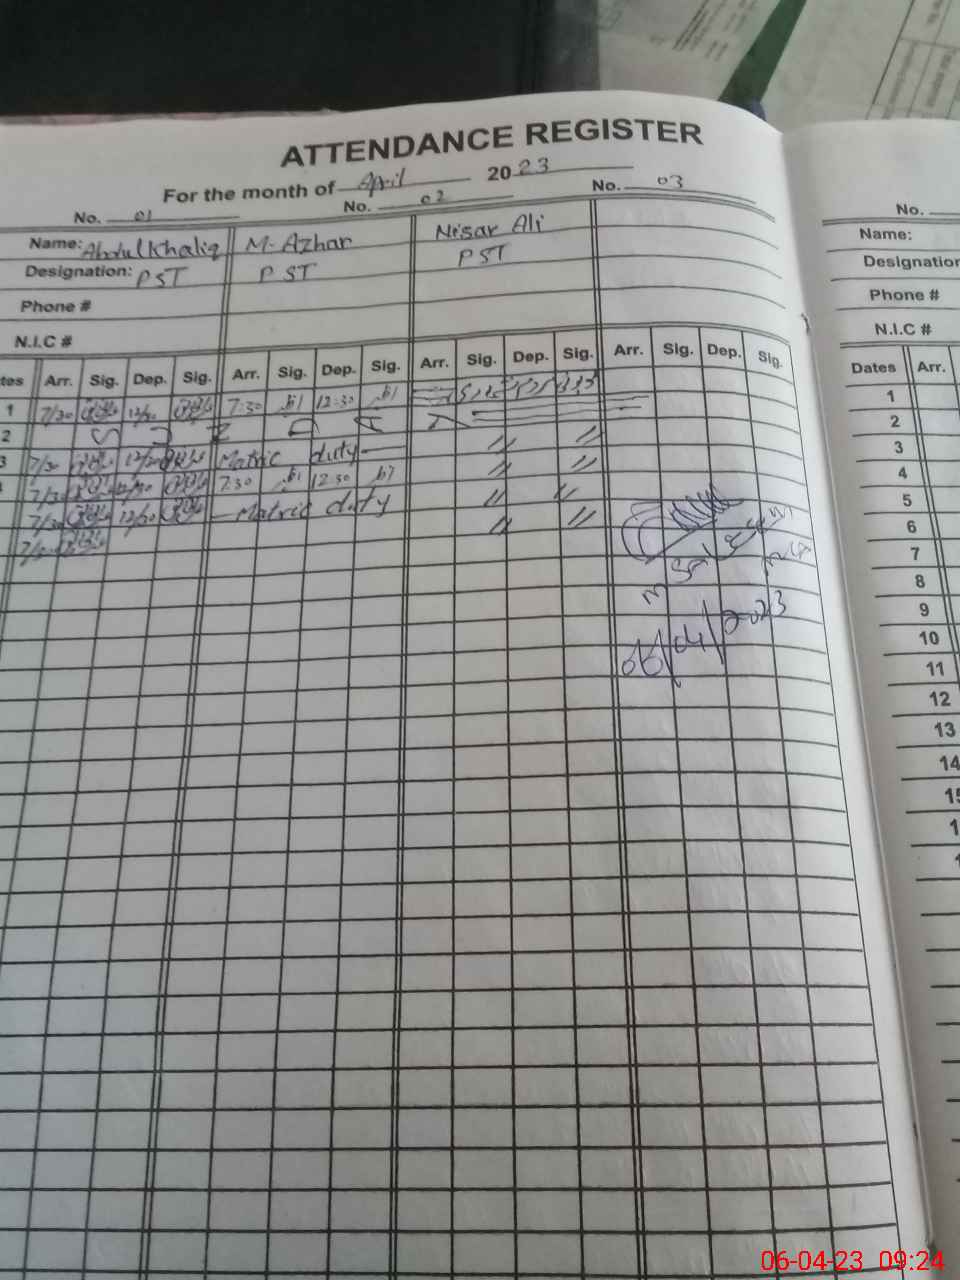 ATTENDANCE REGISTER
For the month of April 2023
No. 01 No. 02 No. 03
Name: Abdul Khaliq M. Azhar Nisar Ali
Designation: PST PST PST
Phone #
N.I.C #
tes Arr. Sig. Dep. Sig. Arr. Sig. Dep. Sig. Arr. Sig. Dep. Sig. Arr. Sig. Dep. Sig.
1 7/30 12/30 7:30 12:30
2 S U N D A Y
3 7/30 12/30 Matric duty // //
7/30 12/30 7:30 12:30 // //
7/30 12/30 Matric duty // //
7/30 // //
06/04/2023
No.
Name:
Designation
Phone #
N.I.C #
Dates Arr.
1
2
3
4
5
6
7
8
9
10
11
12
13
14
15
1
1
06-04-23 09:24